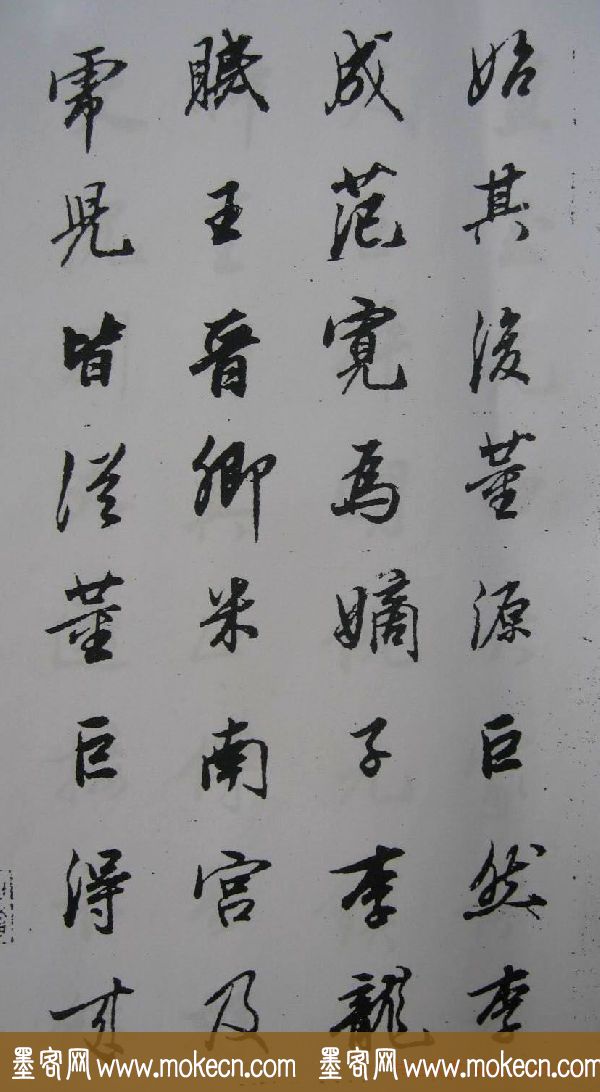 始其後董源巨然李
成范寬為嫡子李龍
眠王晉卿米南宮及
虎兒皆從董巨得來
墨客网 www.mokecn.com 墨客网 www.mokecn.com